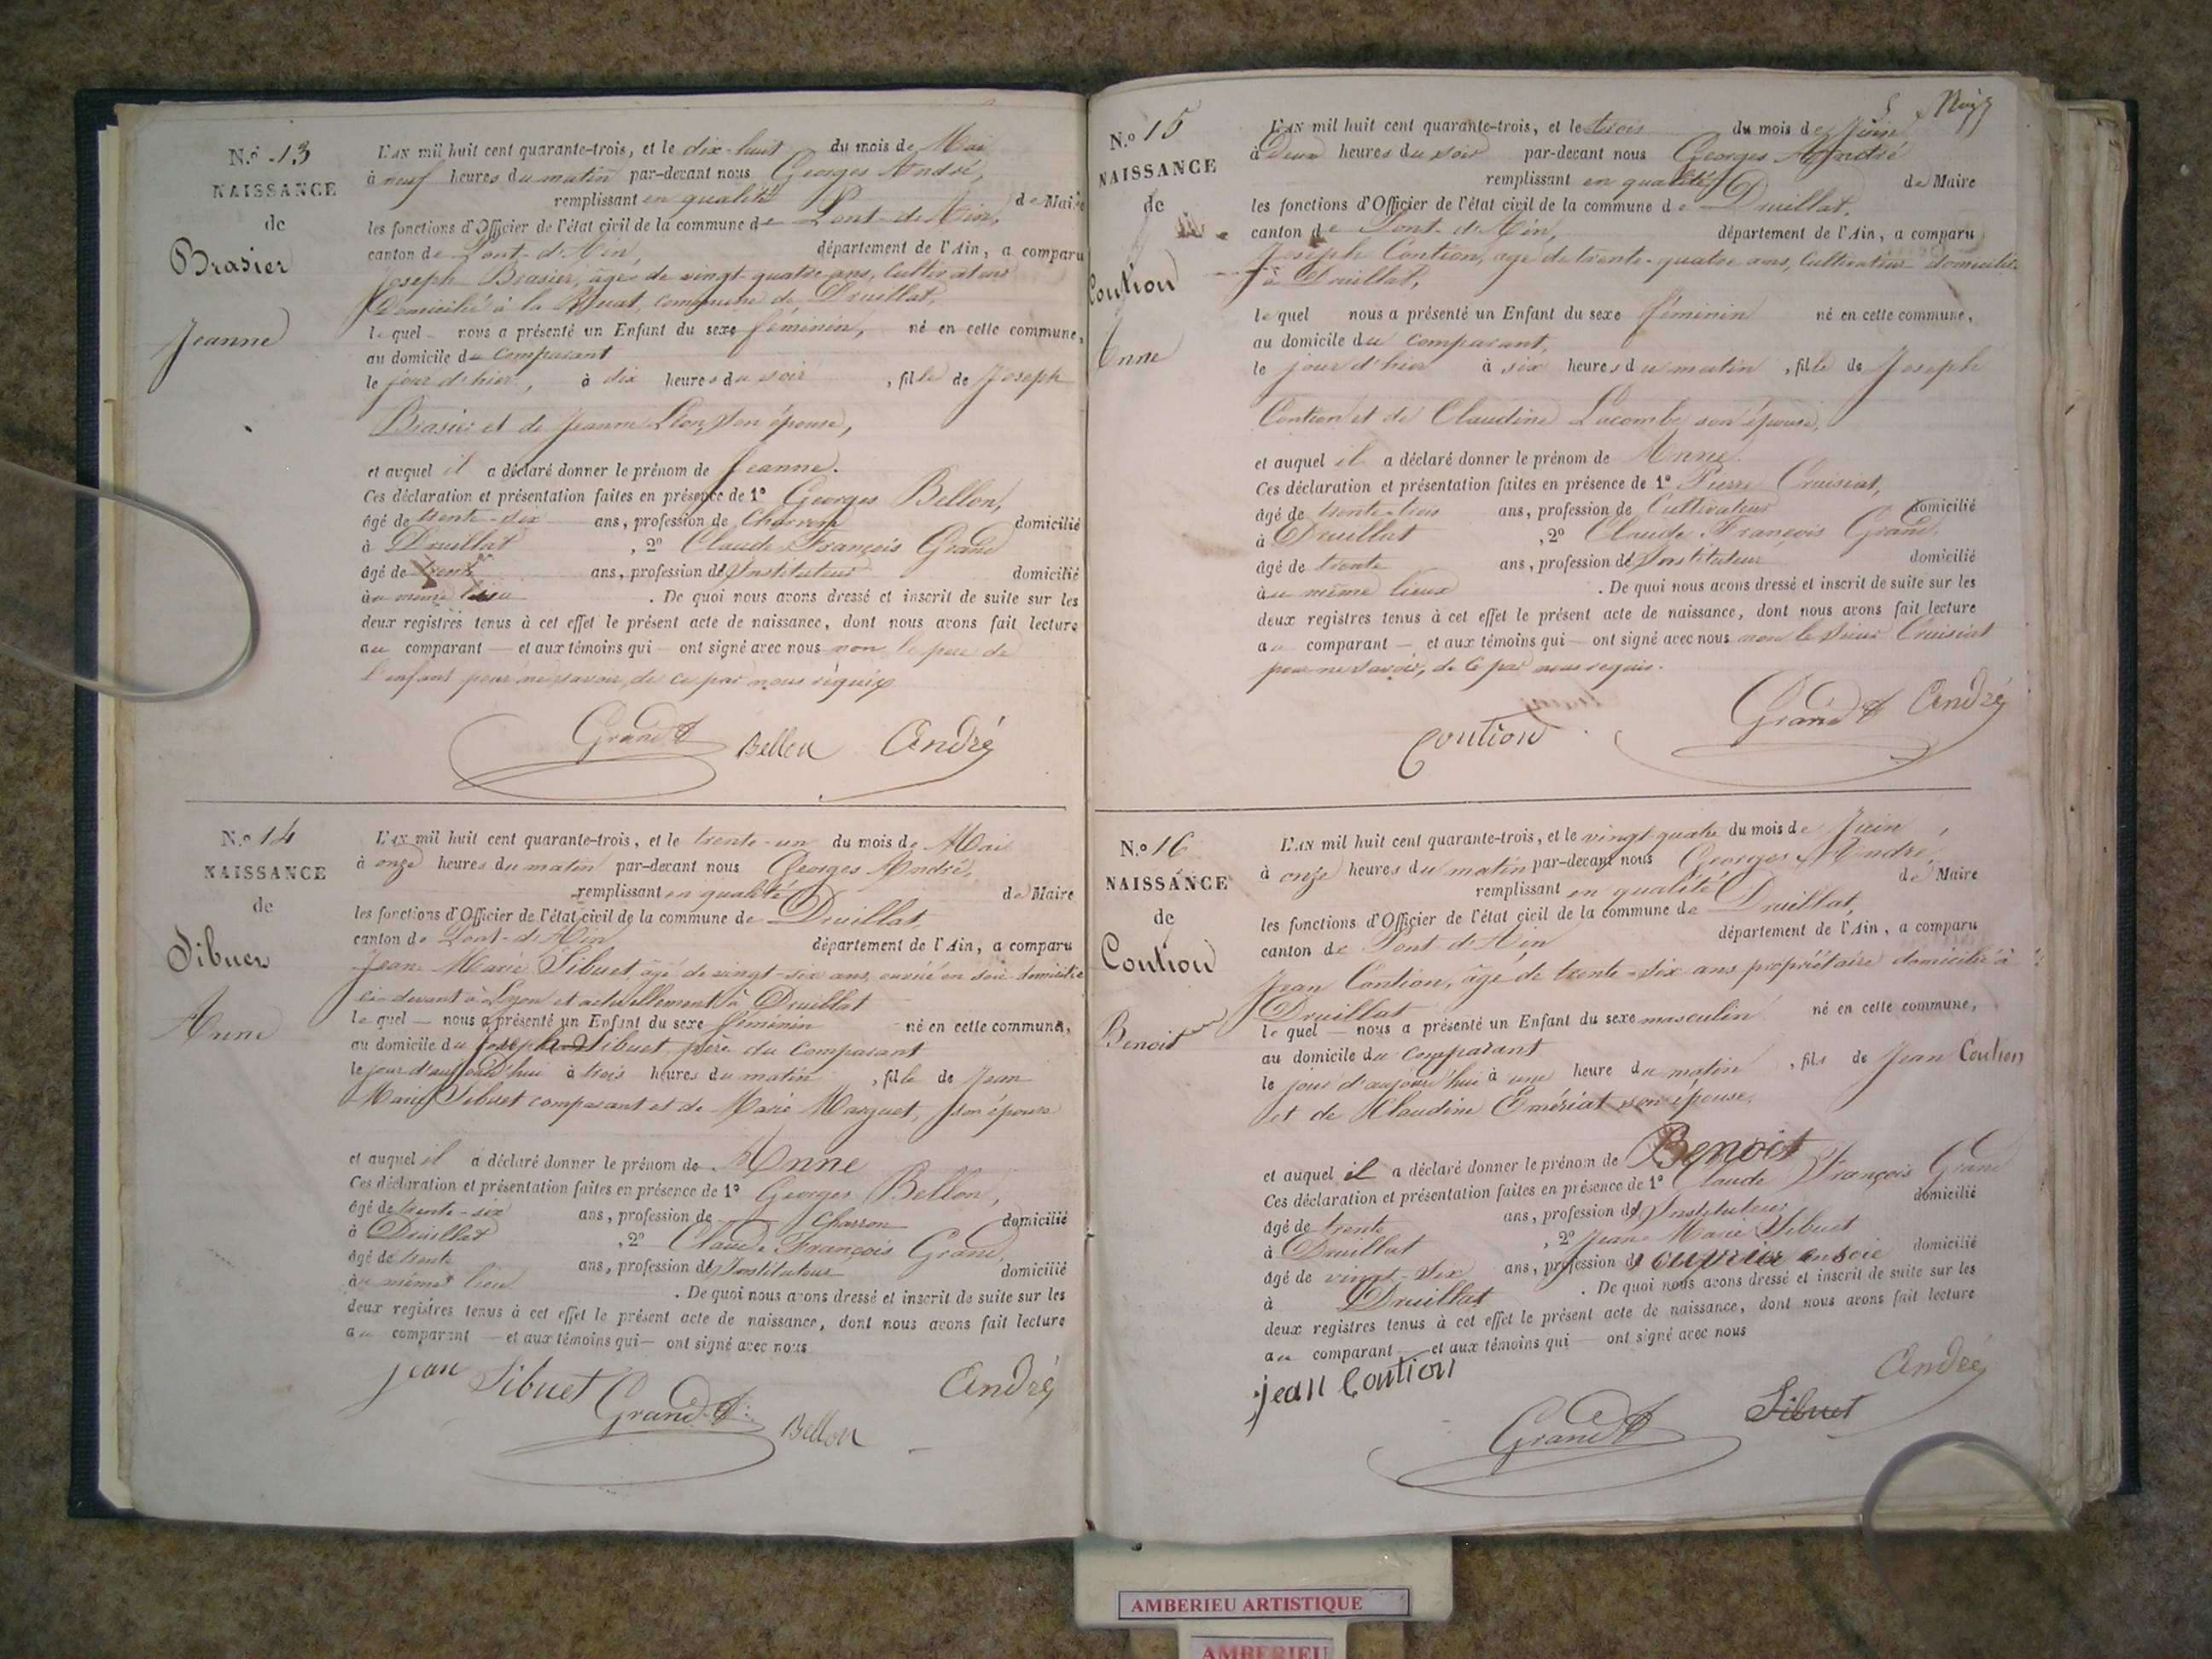 N.º 13
NAISSANCE
de
Brasier
Jeanne
L'AN mil huit cent quarante-trois, et le dix-huit du mois de Mai
à neuf heures du matin par-devant nous Georges André,
remplissant en qualité de Maire
les fonctions d'Officier de l'état civil de la commune de Pont-d'Ain,
canton de Pont-d'Ain, département de l'Ain, a comparu
Joseph Brasier, âgé de vingt-quatre ans, Cultivateur
Domicilié à la commune de Druillat,
lequel nous a présenté un Enfant du sexe féminin, né en cette commune,
au domicile du Comparant
le jour d'hier, à dix heures du soir, fille de Joseph
Brasier et de Jeanne son épouse,
et auquel il a déclaré donner le prénom de Jeanne.
Ces déclaration et présentation faites en présence de 1º Georges Bellon,
âgé de trente-six ans, profession de Charron domicilié
à Druillat, 2º Claude François Grand
âgé de trente ans, profession d'Instituteur domicilié
au même lieu. De quoi nous avons dressé et inscrit de suite sur les
deux registres tenus à cet effet le présent acte de naissance, dont nous avons fait lecture
au comparant — et aux témoins qui — ont signé avec nous non le père de
l'enfant pour ne savoir, de ce par nous requis
Grand Bellon André
N.º 14
NAISSANCE
de
Sibuet
Anne
L'AN mil huit cent quarante-trois, et le trente-un du mois de Mai
à onze heures du matin par-devant nous Georges André,
remplissant en qualité de Maire
les fonctions d'Officier de l'état civil de la commune de Druillat,
canton de Pont-d'Ain département de l'Ain, a comparu
Jean Marie Sibuet âgé de vingt-six ans, ouvrié en soie domicilié
ci-devant à Lyon et actuellement à Druillat
lequel — nous a présenté un Enfant du sexe féminin né en cette commune,
au domicile du Joseph Sibuet père du Comparant
le jour d'aujourd'hui à trois heures du matin, fille de Jean
Marie Sibuet comparant et de Marie Marguet, son épouse
et auquel il a déclaré donner le prénom de Anne
Ces déclaration et présentation faites en présence de 1º Georges Bellon,
âgé de trente-six ans, profession de Charron domicilié
à Druillat, 2º Claude François Grand,
âgé de trente ans, profession d'Instituteur domicilié
au même lieu. De quoi nous avons dressé et inscrit de suite sur les
deux registres tenus à cet effet le présent acte de naissance, dont nous avons fait lecture
au comparant — et aux témoins qui — ont signé avec nous
jean Sibuet Grand Bellon André
N.º 15
NAISSANCE
de
Coution
Anne
L'AN mil huit cent quarante-trois, et le trois du mois de Juin
à Deux heures du soir par-devant nous Georges André
remplissant en qualité de Maire
les fonctions d'Officier de l'état civil de la commune de Druillat,
canton de Pont-d'Ain, département de l'Ain, a comparu
Joseph Coution, âgé de trente-quatre ans, Cultivateur domicilié
à Druillat,
lequel nous a présenté un Enfant du sexe féminin né en cette commune,
au domicile du comparant,
le jour d'hier à six heures du matin, fille de Joseph
Coution et de Claudine Lacombe son épouse,
et auquel il a déclaré donner le prénom de Anne.
Ces déclaration et présentation faites en présence de 1º Pierre Cruisiat,
âgé de trente-trois ans, profession de Cultivateur domicilié
à Druillat, 2º Claude François Grand,
âgé de trente ans, profession d'Instituteur domicilié
au même lieux. De quoi nous avons dressé et inscrit de suite sur les
deux registres tenus à cet effet le présent acte de naissance, dont nous avons fait lecture
au comparant — et aux témoins qui — ont signé avec nous non le Sieur Cruisiat
pour ne savoir, de ce par nous requis.
Coution Grand André
N.º 16
NAISSANCE
de
Coution
Benoit
L'AN mil huit cent quarante-trois, et le vingt-quatre du mois de Juin,
à onze heures du matin par-devant nous Georges André,
remplissant en qualité de Maire
les fonctions d'Officier de l'état civil de la commune de Druillat,
canton de Pont-d'Ain département de l'Ain, a comparu
Jean Coution, âgé de trente-six ans propriétaire domicilié à
Druillat
lequel — nous a présenté un Enfant du sexe masculin né en cette commune,
au domicile du Comparant
le jour d'aujourd'hui à une heure du matin, fils de Jean Coution
et de Claudine Emériat son épouse,
et auquel il a déclaré donner le prénom de Benoit
Ces déclaration et présentation faites en présence de 1º Claude François Grand
âgé de trente ans, profession d'Instituteur domicilié
à Druillat, 2º Jean Marie Sibuet
âgé de vingt-six ans, profession d'ouvrier en soie domicilié
à Druillat. De quoi nous avons dressé et inscrit de suite sur les
deux registres tenus à cet effet le présent acte de naissance, dont nous avons fait lecture
au comparant — et aux témoins qui — ont signé avec nous
jean Coution Grand Sibuet André
AMBERIEU ARTISTIQUE
AMBERIEU